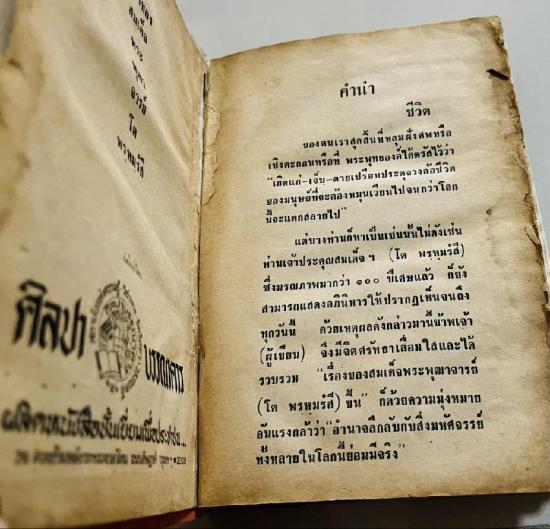 สมเด็จ
พระ
พุฒา
จารย์
โต
พรหมรํสี
ศิลปา
บรรณาคาร
ผลิตแต่หนังสือชั้นเยี่ยมเพื่อประชาชน...
คำนำ
ชีวิต
ของคนเราสุดสิ้นที่หลุมฝังศพหรือ
เชิงตะกอนหรือที่ พระพุทธองค์ได้ตรัสไว้ว่า
"เกิดแก่-เจ็บ-ตายเปรียบประดุจวงล้อชีวิต
ของมนุษย์ที่จะต้องหมุนเวียนไปจนกว่าโลก
นี้จะแตกสลายไป"
แต่บางท่านก็หาเป็นเช่นนั้นไม่ดังเช่น
ท่านเจ้าประคุณสมเด็จฯ (โต พรหมรํสี)
ซึ่งมรณภาพมากว่า ๑๐๐ ปีเศษแล้ว ก็ยัง
สามารถแสดงอภินิหารให้ปรากฏเห็นจนถึง
ทุกวันนี้ ด้วยเหตุผลดังกล่าวมานี้ข้าพเจ้า
(ผู้เขียน) จึงมีจิตศรัทธาเลื่อมใสและได้
รวบรวม "เรื่องของสมเด็จพระพุฒาจารย์
(โต พรหมรํสี) ขึ้น" ก็ด้วยความมุ่งหมาย
อันแรงกล้าว่า "อำนาจลึกลับกับสิ่งมหัศจรรย์
ทั้งหลายในโลกนี้ย่อมมีจริง"